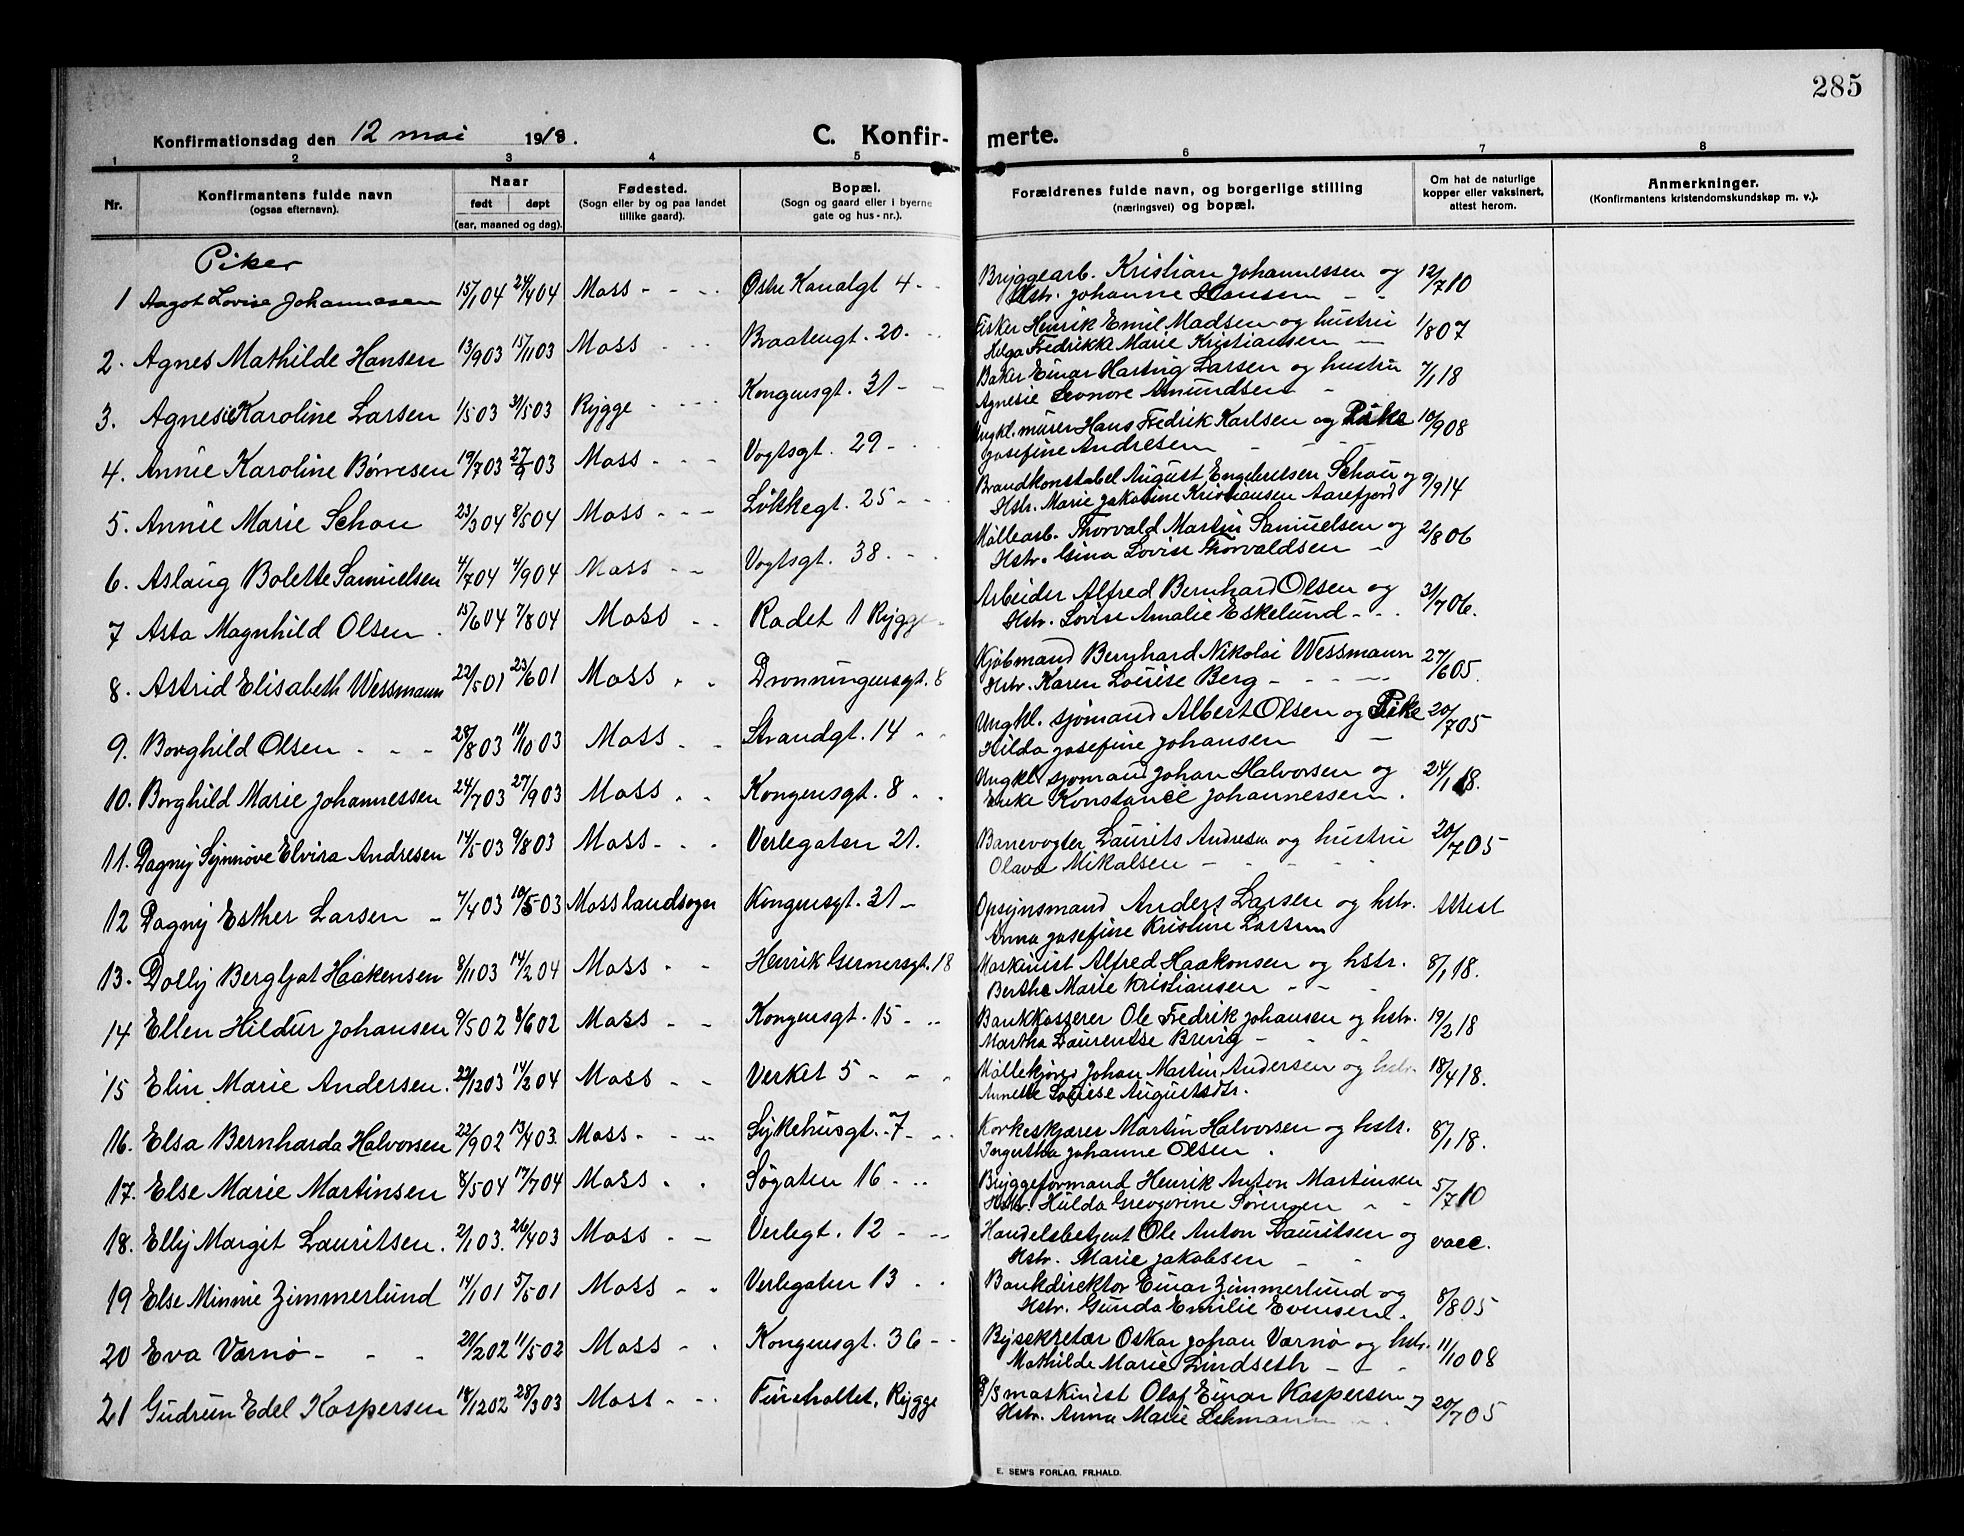 285
Konfirmationsdag den 12 mai 1918.
C. Konfir-
merte.
1 2 3 4 5 6 7 8
Nr.
Konfirmantens fulde navn
(ogsaa efternavn).
Naar
født døpt
(aar, maaned og dag).
Fødested.
(Sogn eller by og paa landet
tillike gaard).
Bopæl.
(Sogn og gaard eller i byerne
gate og hus-nr.).
Forældrenes fulde navn, og borgerlige stilling
(næringsvei) og bopæl.
Om hat de naturlige
kopper eller vaksinert,
attest herom.
Anmerkninger.
(Konfirmantens kristendomskundskap m. v.).
Piker
1 Aagot Lovise Johannessen 15/1 04 24/4 04 Moss - - - Østre Kanalgt 4 - Bryggearb. Kristian Johannessen og 12/7 10
Hstr. Johanne Hansen - -
2. Agnes Mathilde Hansen 13/9 03 15/11 03 Moss - - - Braatengt. 20. - Fisker Henrik Emil Madsen og hustru 1/8 07
Helga Fredrikke Marie Kristiansen -
3. Agnesie Karoline Larsen 1/5 03 31/5 03 Rygge - - - Kongensgt. 31 - - Baker Einar Hartvig Larsen og hustru 7/1 18
Agnesie Leonore Amundsen -
4. Annie Karoline Børresen 19/7 03 27/9 03 Moss - - - Vogtsgt. 29 - - Ungkl. murer Hans Fredrik Karlsen og Pike 10/9 08
Josefine Andresen - - -
5. Annie Marie Schou 23/3 04 8/5 04 Moss - - - Løkkegt. 25 - - Brandkonstabel August Engebretsen Schou og 9/9 14
Hstr. Marie Jakobine Kristiansen Aarefjord
6. Aslaug Bolette Samuelsen 4/7 04 4/9 04 Moss - - Vogtsgt. 38. - - Møllearb. Thorvald Martin Samuelsen og 2/8 06
Hstr. Gina Lovise Thorvaldsen -
7 Asta Magnhild Olsen. 15/6 04 7/8 04 Moss - - Rødet i Rygge - Arbeider Alfred Bernhard Olsen og 31/7 06.
Hstr. Lovise Amalie Eskelund - - -
8. Astrid Elisabeth Wessmann 22/5 01 23/6 01 Moss - - Dronningensgt. 8 Kjøbmand Bernhard Nikolai Wessmann 27/6 05.
Hstr. Karen Louise Berg - - - -
9. Borghild Olsen - - - 28/8 03 18/10 03 Moss - - Strandgt. 14 - - Ungkl. sjømand Albert Olsen og Pike 20/7 05
Hilda Josefine Johansen -
10. Borghild Marie Johannessen 24/7 03 27/9 03 Moss - - Kongensgt. 8 - - Ungkl. sjømand Johan Halvorsen og 24/1 18.
Enke Konstance Johannessen.
11. Dagny Synnøve Elvira Andresen 14/5 03 9/8 03 Moss - - - Verlegaten 21. Banevogter Laurits Andresen og hustru 20/7 05
Olava Mikalsen - - - -
12 Dagny Esther Larsen - 7/4 03 10/5 03 Moss landsogn Kongensgt. 31 - Opsynsmand Anders Larsen og hstr. Attest
Anna Josefine Kristine Larsen
13. Dolly Bergljot Haakensen 8/11 03 14/2 04 Moss - - Henrik Gernersgt. 18 Maskinist Alfred Haakonsen og hstr. 8/1 18.
Berthe Marie Kristiansen - - -
14 Ellen Hildur Johansen 9/5 02 8/6 02 Moss - - Kongensgt. 15 - - Bankkasserer Ole Fredrik Johansen og hstr. 19/2 18
Martha Laurentse Brevig - - -
15 Elin Marie Andersen. 22/12 03 14/2 04 Moss - - Verket 5 - - - Møllekjører Johan Martin Andersen og hstr. 18/4 18.
Annette Lovise Augustsdtr.
16. Elsa Bernharda Halvorsen 22/9 02 13/4 03. Moss - - - Sykehusgt. 7 - - Korkeskjærer Martin Halvorsen og hstr. 8/1 18.
Ingertha Johanne Olsen .
17. Else Marie Martinsen 8/5 04 17/7 04 Moss - - Søgaten 16 - - Bryggeformand Henrik Anton Martinsen 5/7 10
Hstr. Hulda Gregorine Sørensen - -
18. Elly Margit Lauritsen. 2/1 03. 26/4 03 Moss - - Verlegt. 12 - - Handelsbetjent Ole Anton Lauritsen og vacc.
Hstr. Marie Jakobsen - -
19 Else Minnie Zimmerlund 14/1 01 5/5 01 Moss - - Verlegaten 13 - - Bankdirektør Einar Zimmerlund og 8/8 05
Hstr. Gunda Emilie Evensen.
20 Eva Værnø - - - 20/2 02 11/5 02 Moss - - Kongensgt. 36 - - Bysekretær Oskar Johan Værnø og hstr. 11/10 08
Mathilde Marie Lindseth - - -
21 Gudrun Edel Kaspersen 14/12 02 28/3 03 Moss - - Fureholtet, Rygge D/S maskinist Olaf Einar Kaspersen og 20/7 05
Hstr. Anna Marie Lehmann - -
E. SEM'S FORLAG, FR.HALD.